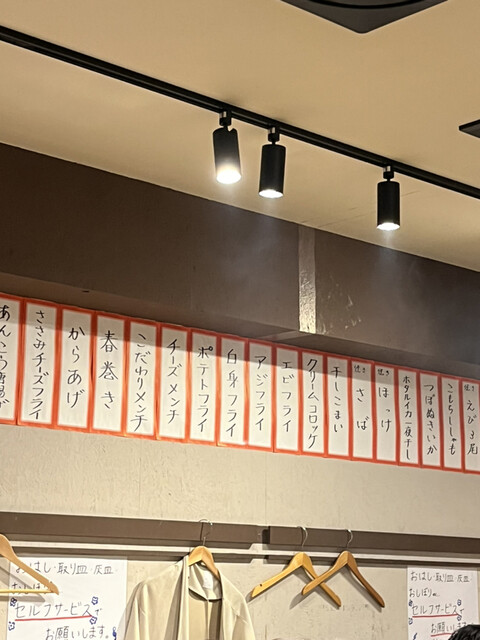 焼き えび3尾
こもちししゃも
つぼぬきいか
ホタルイカ一夜干し
焼き ほっけ
焼き さば
干しこまい
クリームコロッケ
エビフライ
アジフライ
白身フライ
ポテトフライ
チーズメンチ
こだわりメンチ
春巻き
からあげ
ささみチーズフライ
あんこう唐揚げ
おはし・取り皿・灰皿・
おしぼり
セルフサービスで
お願いします。
おはし・取り皿・灰皿
おしぼり
セルフサービス
お願いし